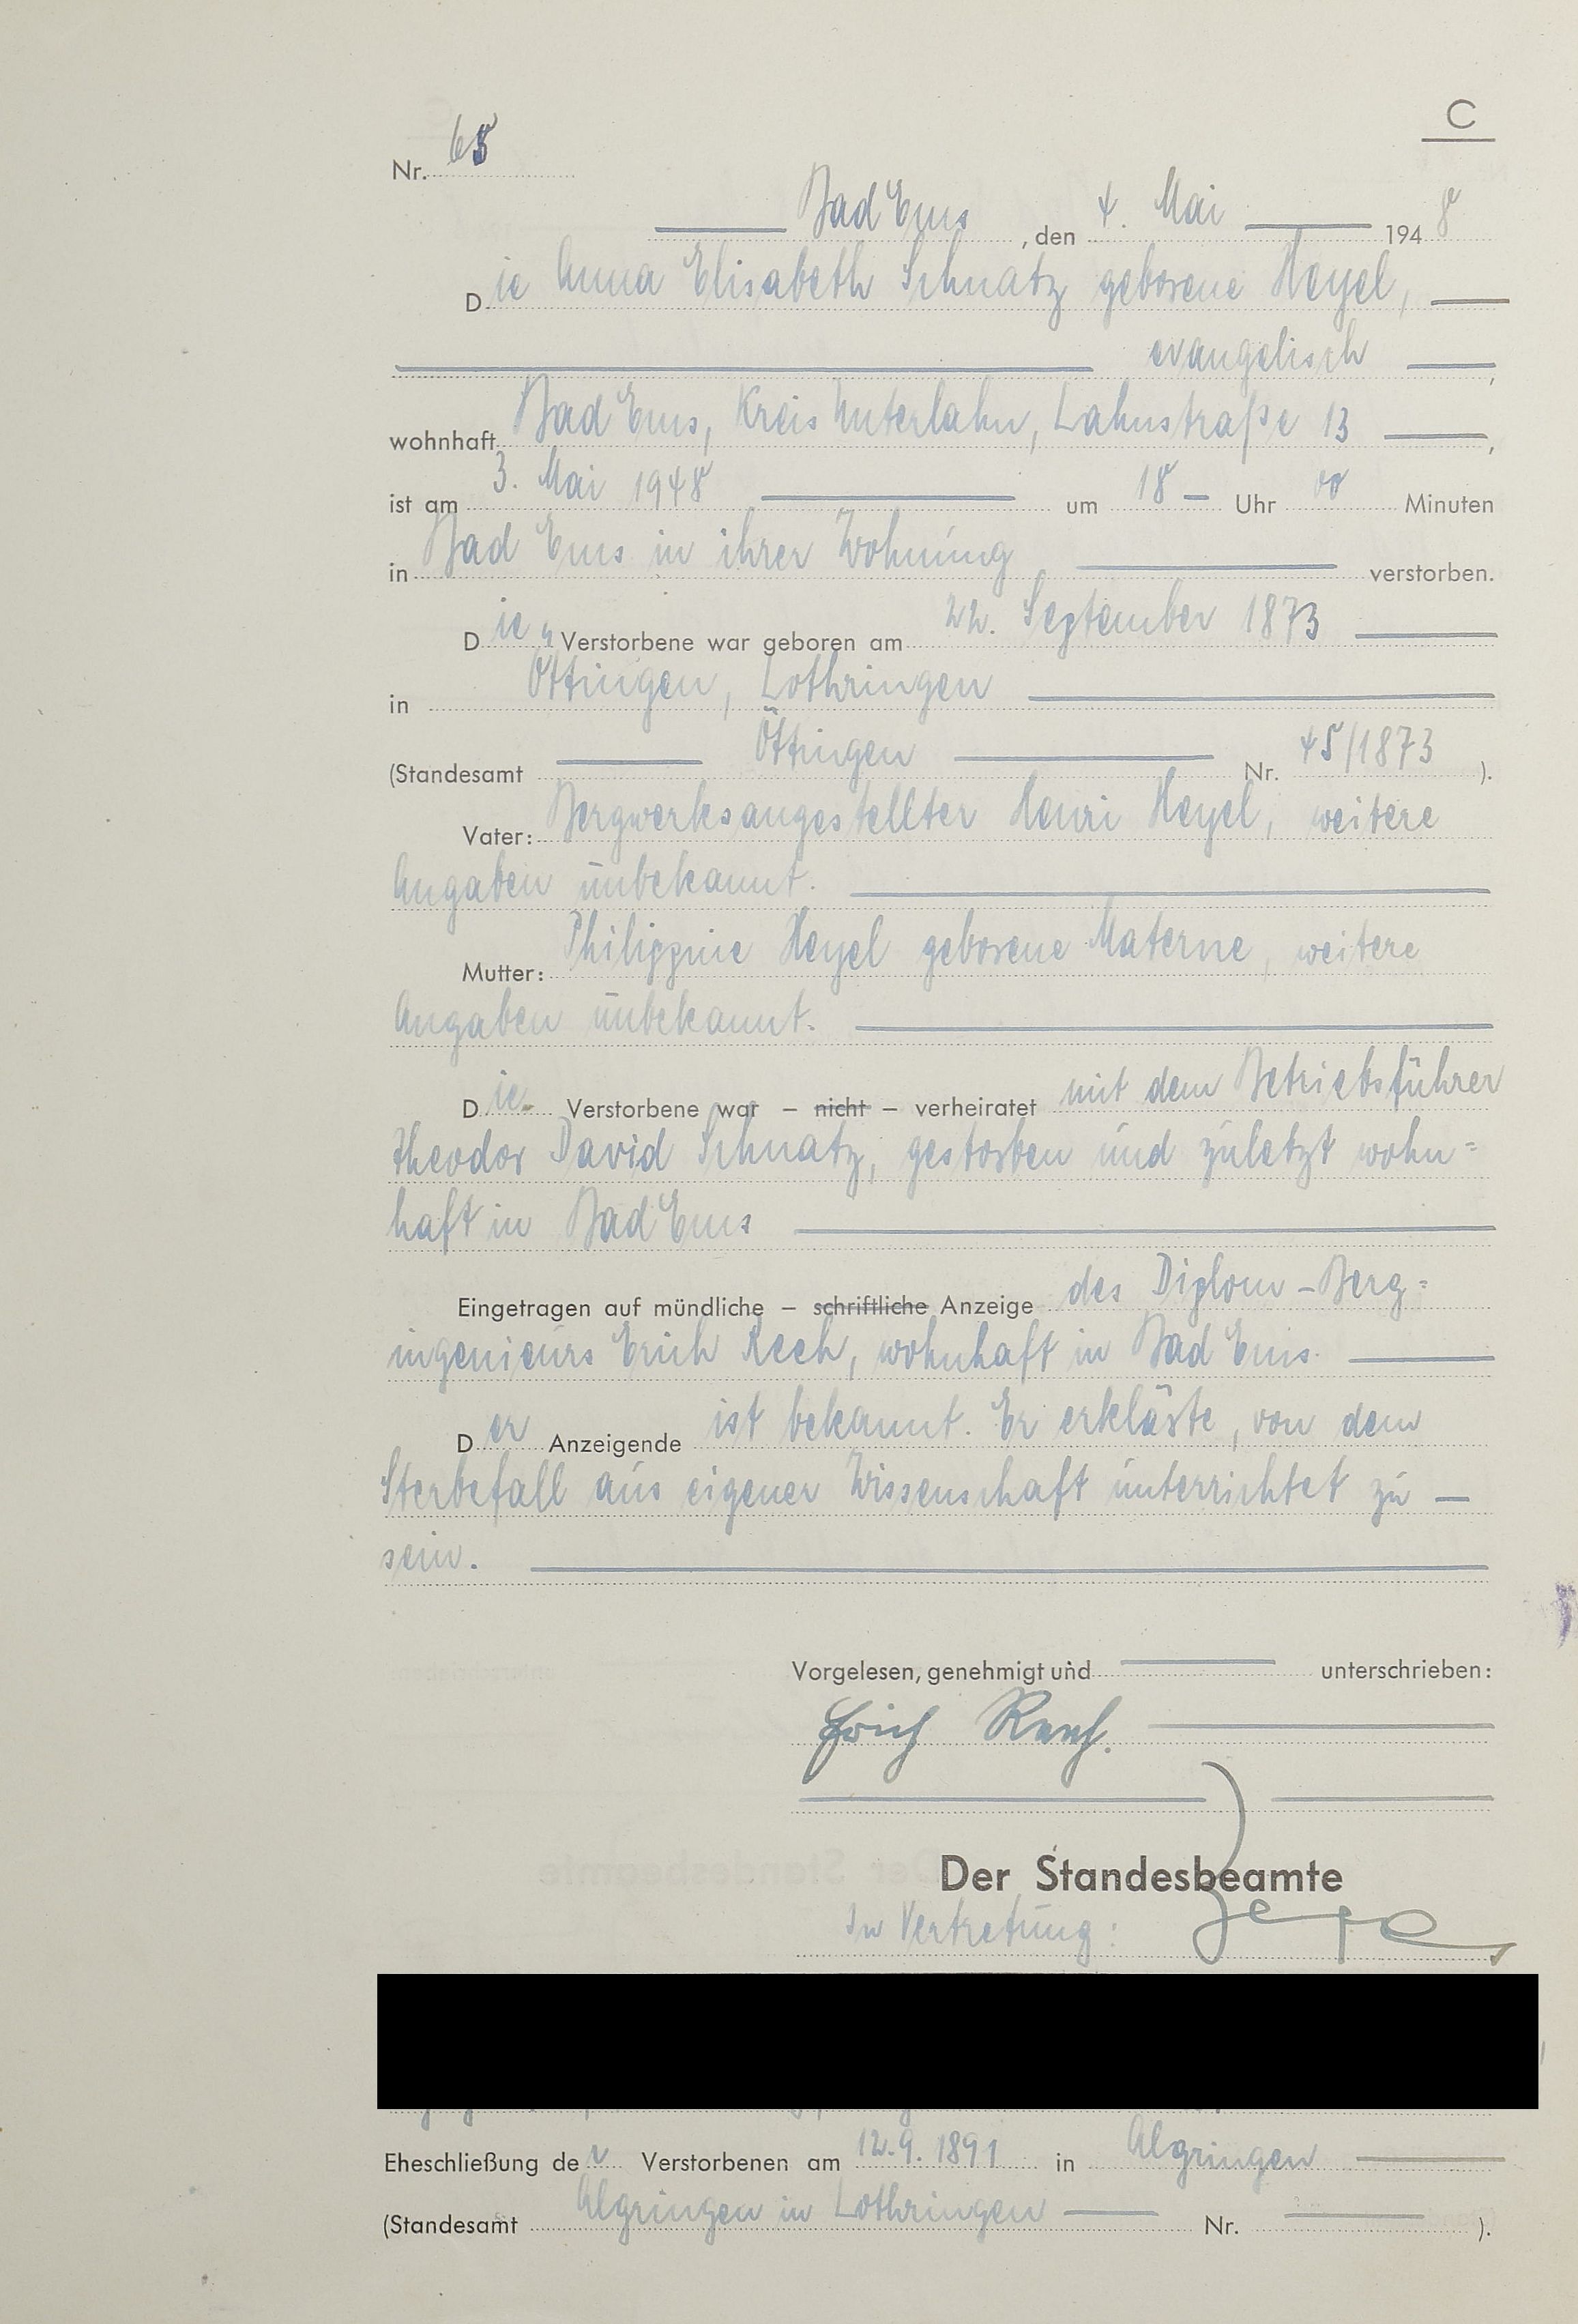 C
Nr. 65
Bad Ems, den 4. Mai 1948
Die Anna Elisabeth Schnatz geborene Heyel,
evangelisch,
wohnhaft Bad Ems, Kreis Unterlahn, Lahnstraße 13,
ist am 3. Mai 1948 um 18 – Uhr 00 Minuten
in Bad Ems in ihrer Wohnung verstorben.
Die Verstorbene war geboren am 22. September 1873
in Öttingen, Lothringen
(Standesamt Öttingen Nr. 45/1873).
Vater: Bergwerksangestellter Henri Heyel, weitere
Angaben unbekannt.
Mutter: Philippine Heyel geborene Materne, weitere
Angaben unbekannt.
Die Verstorbene war – nicht – verheiratet mit dem Betriebsführer
Theodor David Schnatz, gestorben und zuletzt wohn=
haft in Bad Ems
Eingetragen auf mündliche – schriftliche Anzeige des Diplom-Berg=
ingenieurs Erich Reeh, wohnhaft in Bad Ems.
Der Anzeigende ist bekannt. Er erklärte, von dem
Sterbefall aus eigener Wissenschaft unterrichtet zu
sein.
Vorgelesen, genehmigt und unterschrieben:
Erich Reeh.
Der Standesbeamte
In Vertretung:
Eheschließung der Verstorbenen am 12.9.1891 in Algringen
(Standesamt Algringen in Lothringen Nr. ).